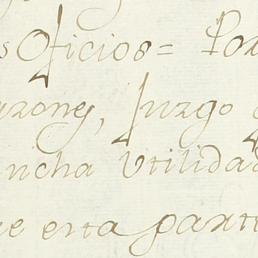 s Oficios = Por
razones, Juzgo
mucha Utilidad
ue esta parte